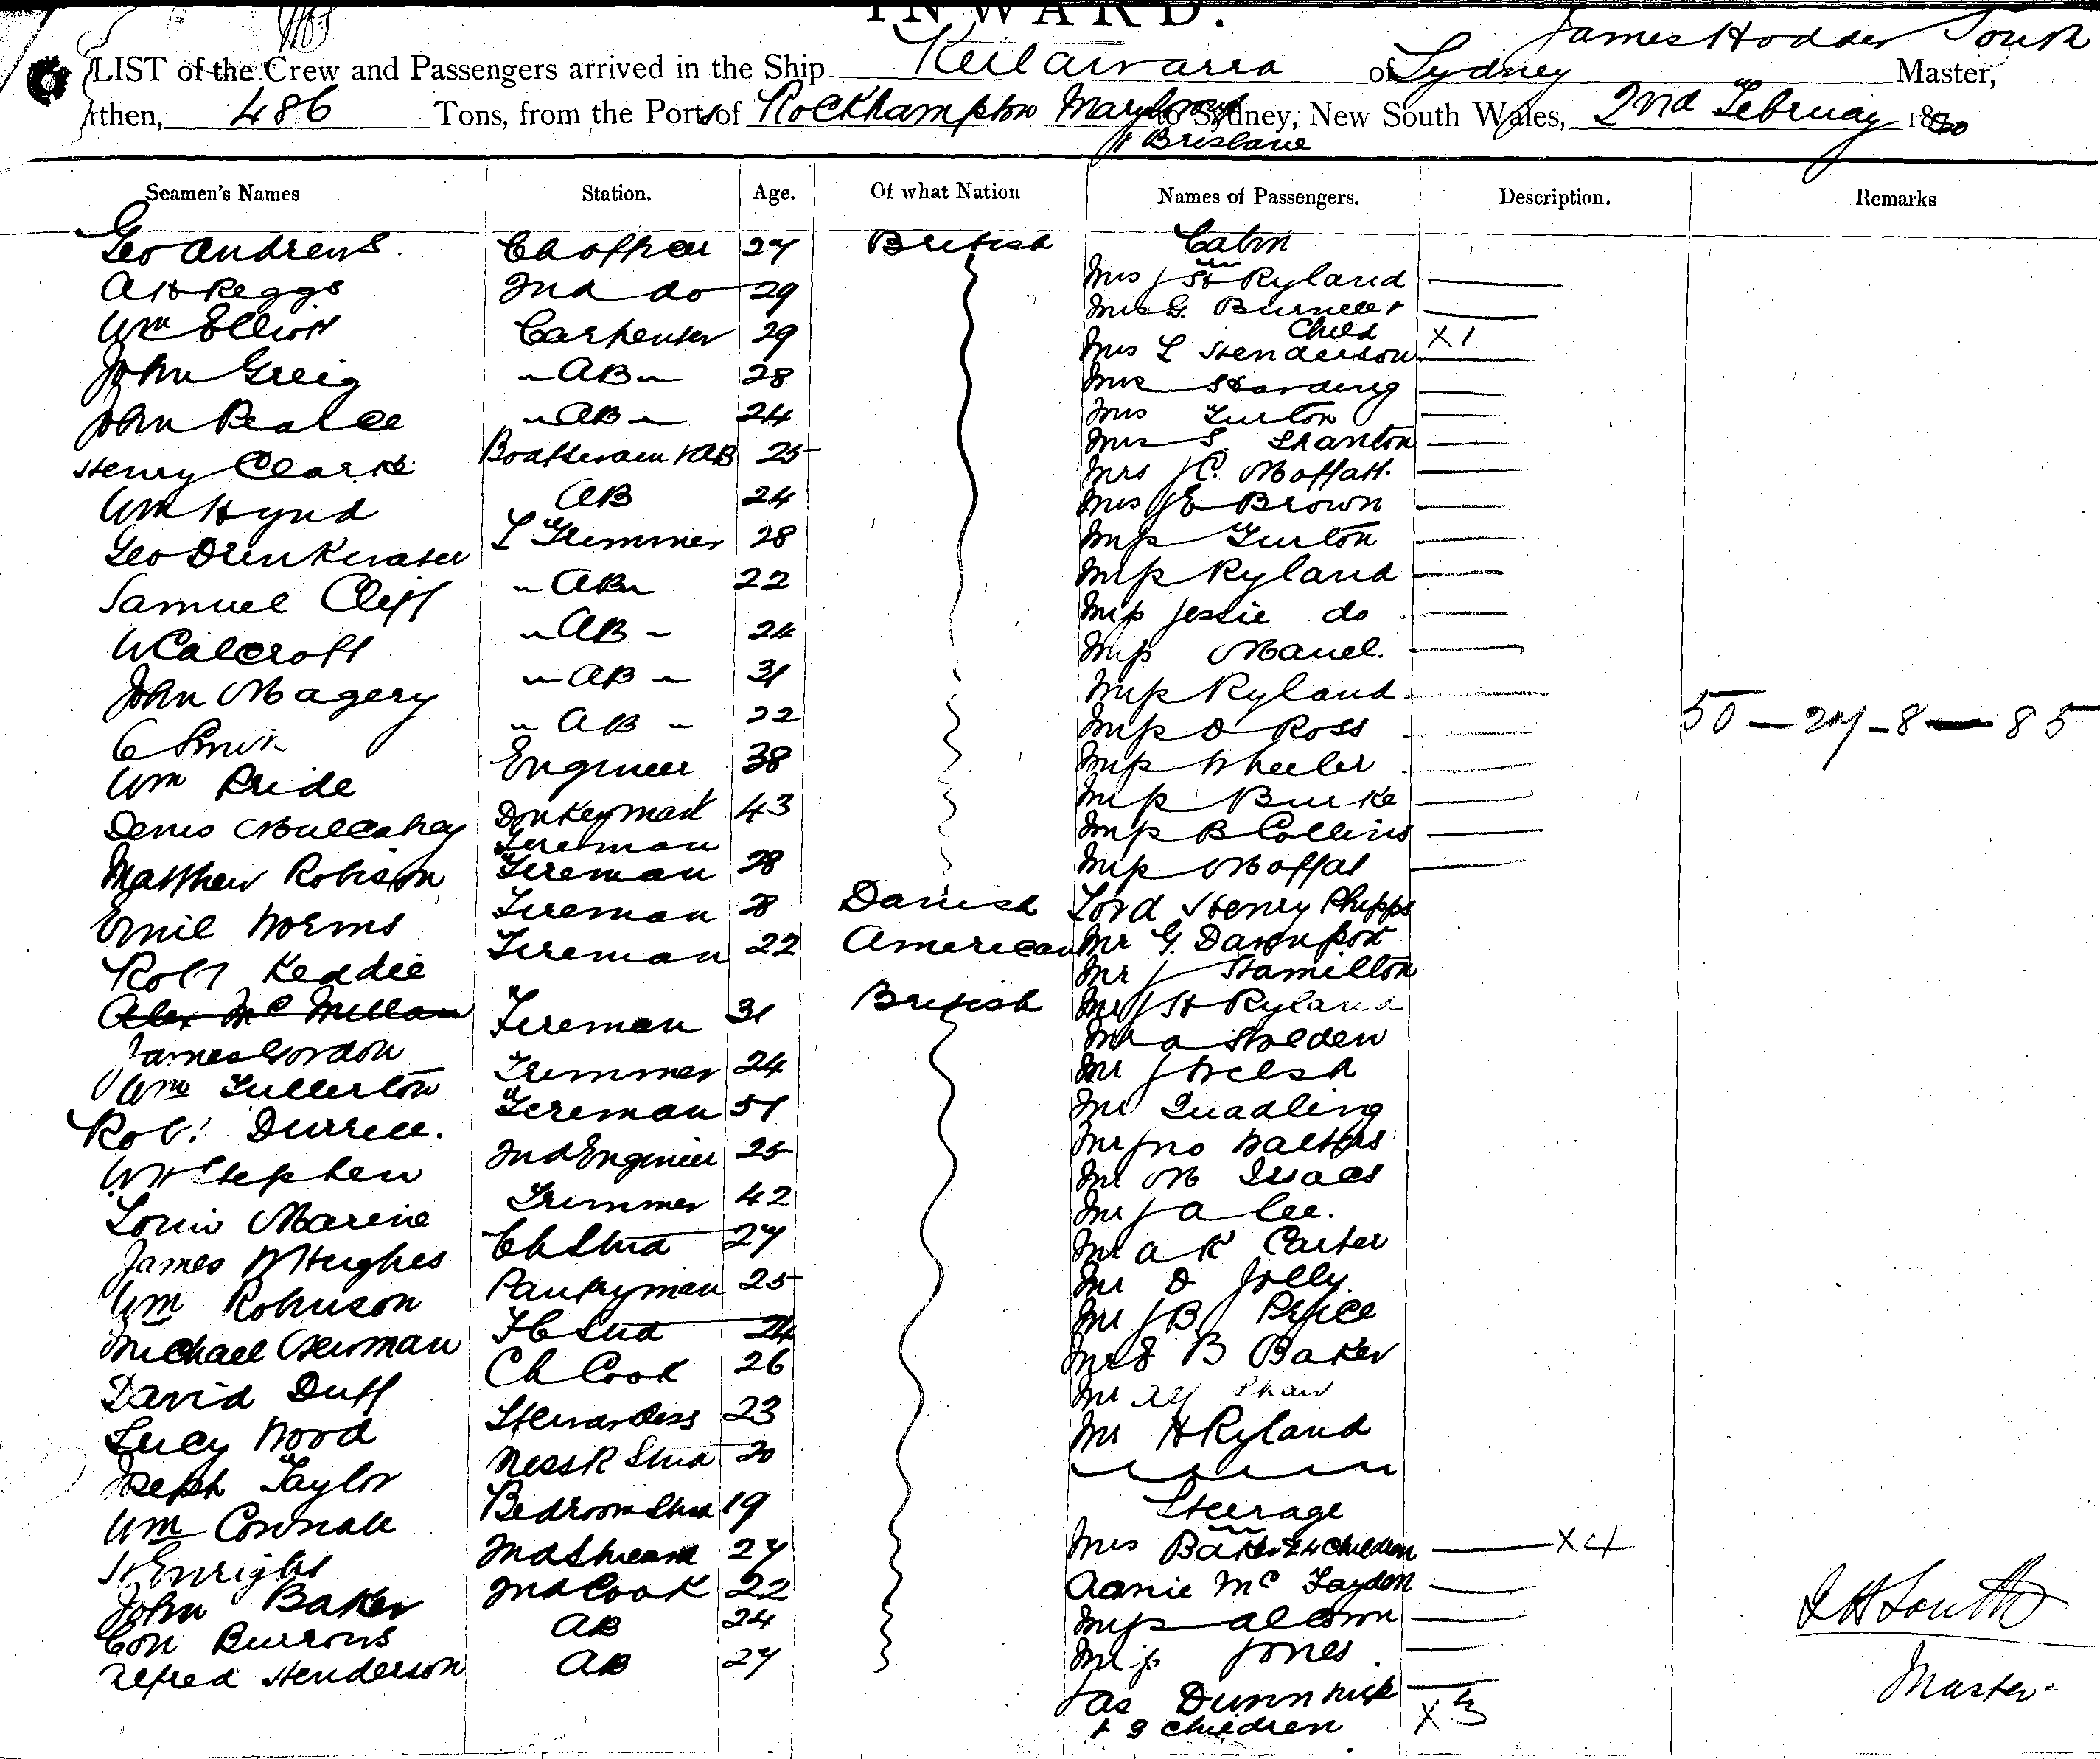 INWARD.
James Hodder South
LIST of the Crew and Passengers arrived in the Ship Keilawarra of Sydney Master,
rthen, 486 Tons, from the Ports of Rockhampton Marybro to Sydney, New South Wales, 2nd February 18
& Brisbane
Seamen's Names Station. Age. Of what Nation Names of Passengers. Description. Remarks
Geo Andrews Ch officer 27 British Cabin
A H Peggs 2nd do 29 Mrs J H Ryland
Wm Elliott Carpenter 29 Mrs G. Burnett &
Child X 1
John Greig AB 28 Mrs L Henderson
John Pearce AB 24 Mrs Harding
Henry Clarke Boatswain & AB 25 Mrs Turton
Wm Hynd AB 24 Mrs S. Stanton
Geo Drinkwater L Trimmer 28 Mrs J C. Moffatt.
Samuel Cliff AB 22 Mrs J E Brown
W Calcroft AB 24 Miss Turton
John Magery AB 31 Miss Ryland
C Smith AB 22 Miss Jessie do
Wm Pride Engineer 38 Miss Manel.
Denis Mulcahey Donkeyman & 43 Miss Ryland
Fireman Miss D Ross 50 - 27 - 8 - 85
Matthew Robison Fireman 28 Miss Wheeler
Emil Worms Fireman 28 Danish Miss Burke
Robt Keddie Fireman 22 American Miss B Collins
Alex McMillan Miss Moffat
James Gordon Fireman 31 British Lord Henry Phipps
Wm Fullerton Trimmer 24 Mr G. Davenport
Robt Durrell. Fireman 51 Mr J Hamilton
W H Stephen 2nd Engineer 25 Mr J H Ryland
Louis Marene Trimmer 42 Mr A Holden
James W Hughes Ch Stwd 27 Mr J Welsh
Wm Robinson Pantryman 25 Mr Quadling
Michael Newman F C Stwd 24 Mr Jno Walters
David Duff Ch Cook 26 Mr M Isaacs
Lucy Wood Stewardess 23 Mr J A Lee.
Joseph Taylor Mess R Stwd 20 Mr A K Carter
Wm Connab Bedroom Stwd 19 Mr D Jolly.
H Enright 2nd Steward 27 Mr J B Price
John Baker 2nd Cook 22 Mrs B Baker
Con Burrows AB 24 Mr Alf Shaw
Alfred Henderson AB 27 Mr H Ryland
Steerage
Mrs Baker & 4 children X 4
Annie McFayden
Miss Alcorn
Miss Jones
Jas Dunn wife
& 3 children X 3
J H South
Master